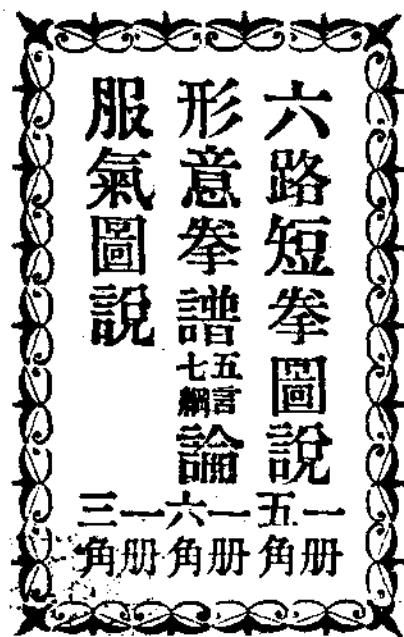 六路短拳圖說 一册五角
形意拳譜五言七綱論 一册六角
服氣圖說 一册三角